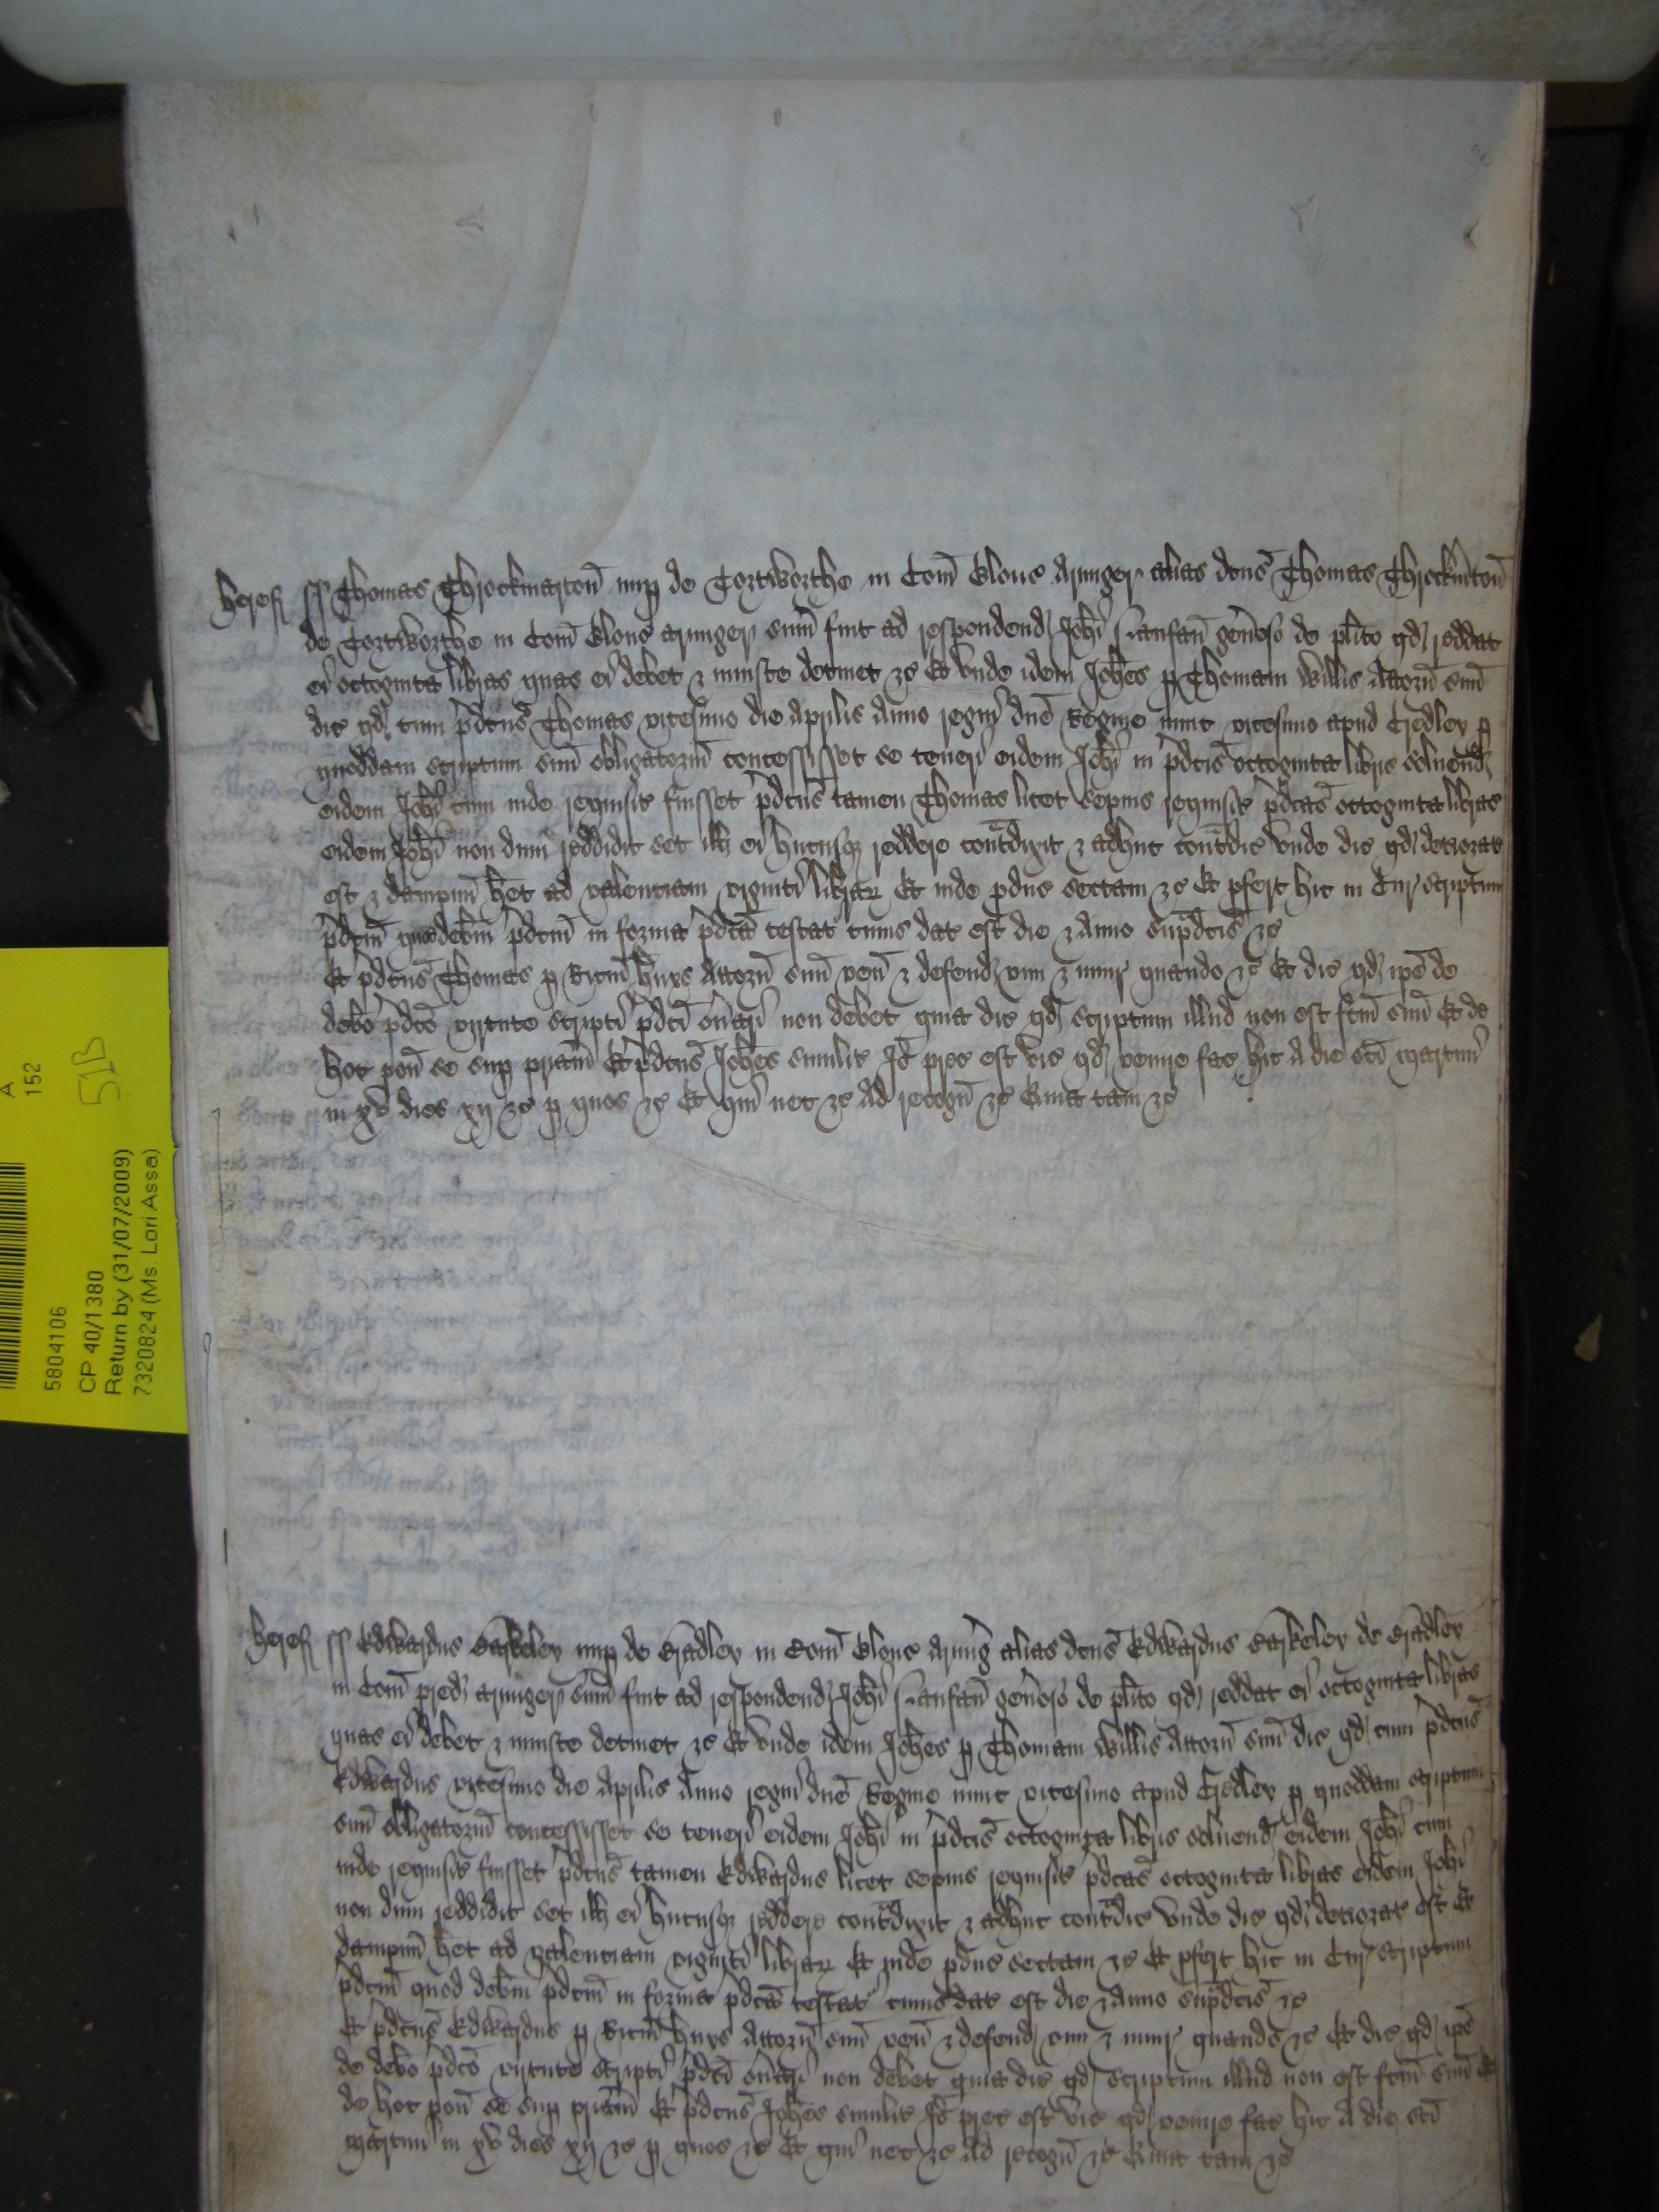 Heref ss Thomas Throckmarton nup de Tortworthe in Com Glouc Armiger alias dcus Thomas Throckmton
de Tortworthe in Com Glouc armiger sum fuit ad respondend Johi generoso de plito qd reddat
ei octoginta libras quas ei debet & iniuste detinet &c Et unde idem Johes p Thomam Willis Attorn suu
dic qd cum pdcus Thomas vicesimo die Aprilis Anno regni dne Regine nunc vicesimo apud Credley p
quoddam scriptum suu obligatoriu concessisset se teneri eidem Johi in pdcis octoginta libris solvend
eidem Johi cum inde requisit fuisset pdcus tamen Thomas licet sepius requisit pdcas octoginta libras
eidem Johi non dum reddidit set ill ei hucusq reddere contadixit & adhuc contadic Unde dic qd deteriorat
est & dampnu het ad valenciam viginti librar Et inde pduc sectam &c Et pfert hic in Cur scriptum
pdcm quod debm pdcm in forma pdca testat cuius dat est die & Anno supadcis &c
Et pdcus Thomas p Ricm Attorn suu ven & defend vim & iniur quando &c Et dic qd ipe de
debo pdco virtute scripti pdci onari non debet quia dic qd scriptum illud non est fcm suu Et de
hoc pon se sup priam Et pdcus Johes similit Io prec est vic qd venire fac hic A die sci Martini
in xv dies xij &c p quos &c Et qui nec &c Ad recogn &c Quia tam &c
Heref ss Edwardus Barkeley nup de Bradley in Com Glouc Armig alias dcus Edwardus Barkeley de Bradley
in Com pred armiger sum fuit ad respondend Johi generoso de plito qd reddat ei octoginta libras
quas ei debet & iniuste detinet &c Et unde idem Johes p Thomam Willis Attorn suu dic qd cum pdcus
Edwardus vicesimo die Aprilis Anno regni dne Regine nunc vicesimo apud Credley p quoddam scriptum
suu obligatoriu concessisset se teneri eidem Johi in pdcis octoginta libris solvend eidem Johi cum
inde requisit fuisset pdcus tamen Edwardus licet sepius requisit pdcas octoginta libras eidem Johi
non dum reddidit set ill ei hucusq reddere contadixit & adhuc contadic Unde dic qd deteriorat est Et
dampnu het ad valenciam viginti librar Et inde pduc sectam &c Et pfert hic in Cur scriptum
pdcm quod debm pdcm in forma pdca testat cuius dat est die & Anno supadcis &c
Et pdcus Edwardus p Ricm Attorn suu ven & defend vim & iniur quando &c Et dic qd ipe
de debo pdco virtute scripti pdci onari non debet quia dic qd scriptum illud non est fcm suu Et
de hoc pon se sup priam Et pdcus Johes similit Io prec est vic qd venire fac hic A die sci
Martini in xv dies xij &c p quos &c Et qui nec &c Ad recogn &c Quia tam &c
A
152
51B
5804106
CP 40/1380
Return by (31/07/2009)
7320824 (Ms. Lori Assa)